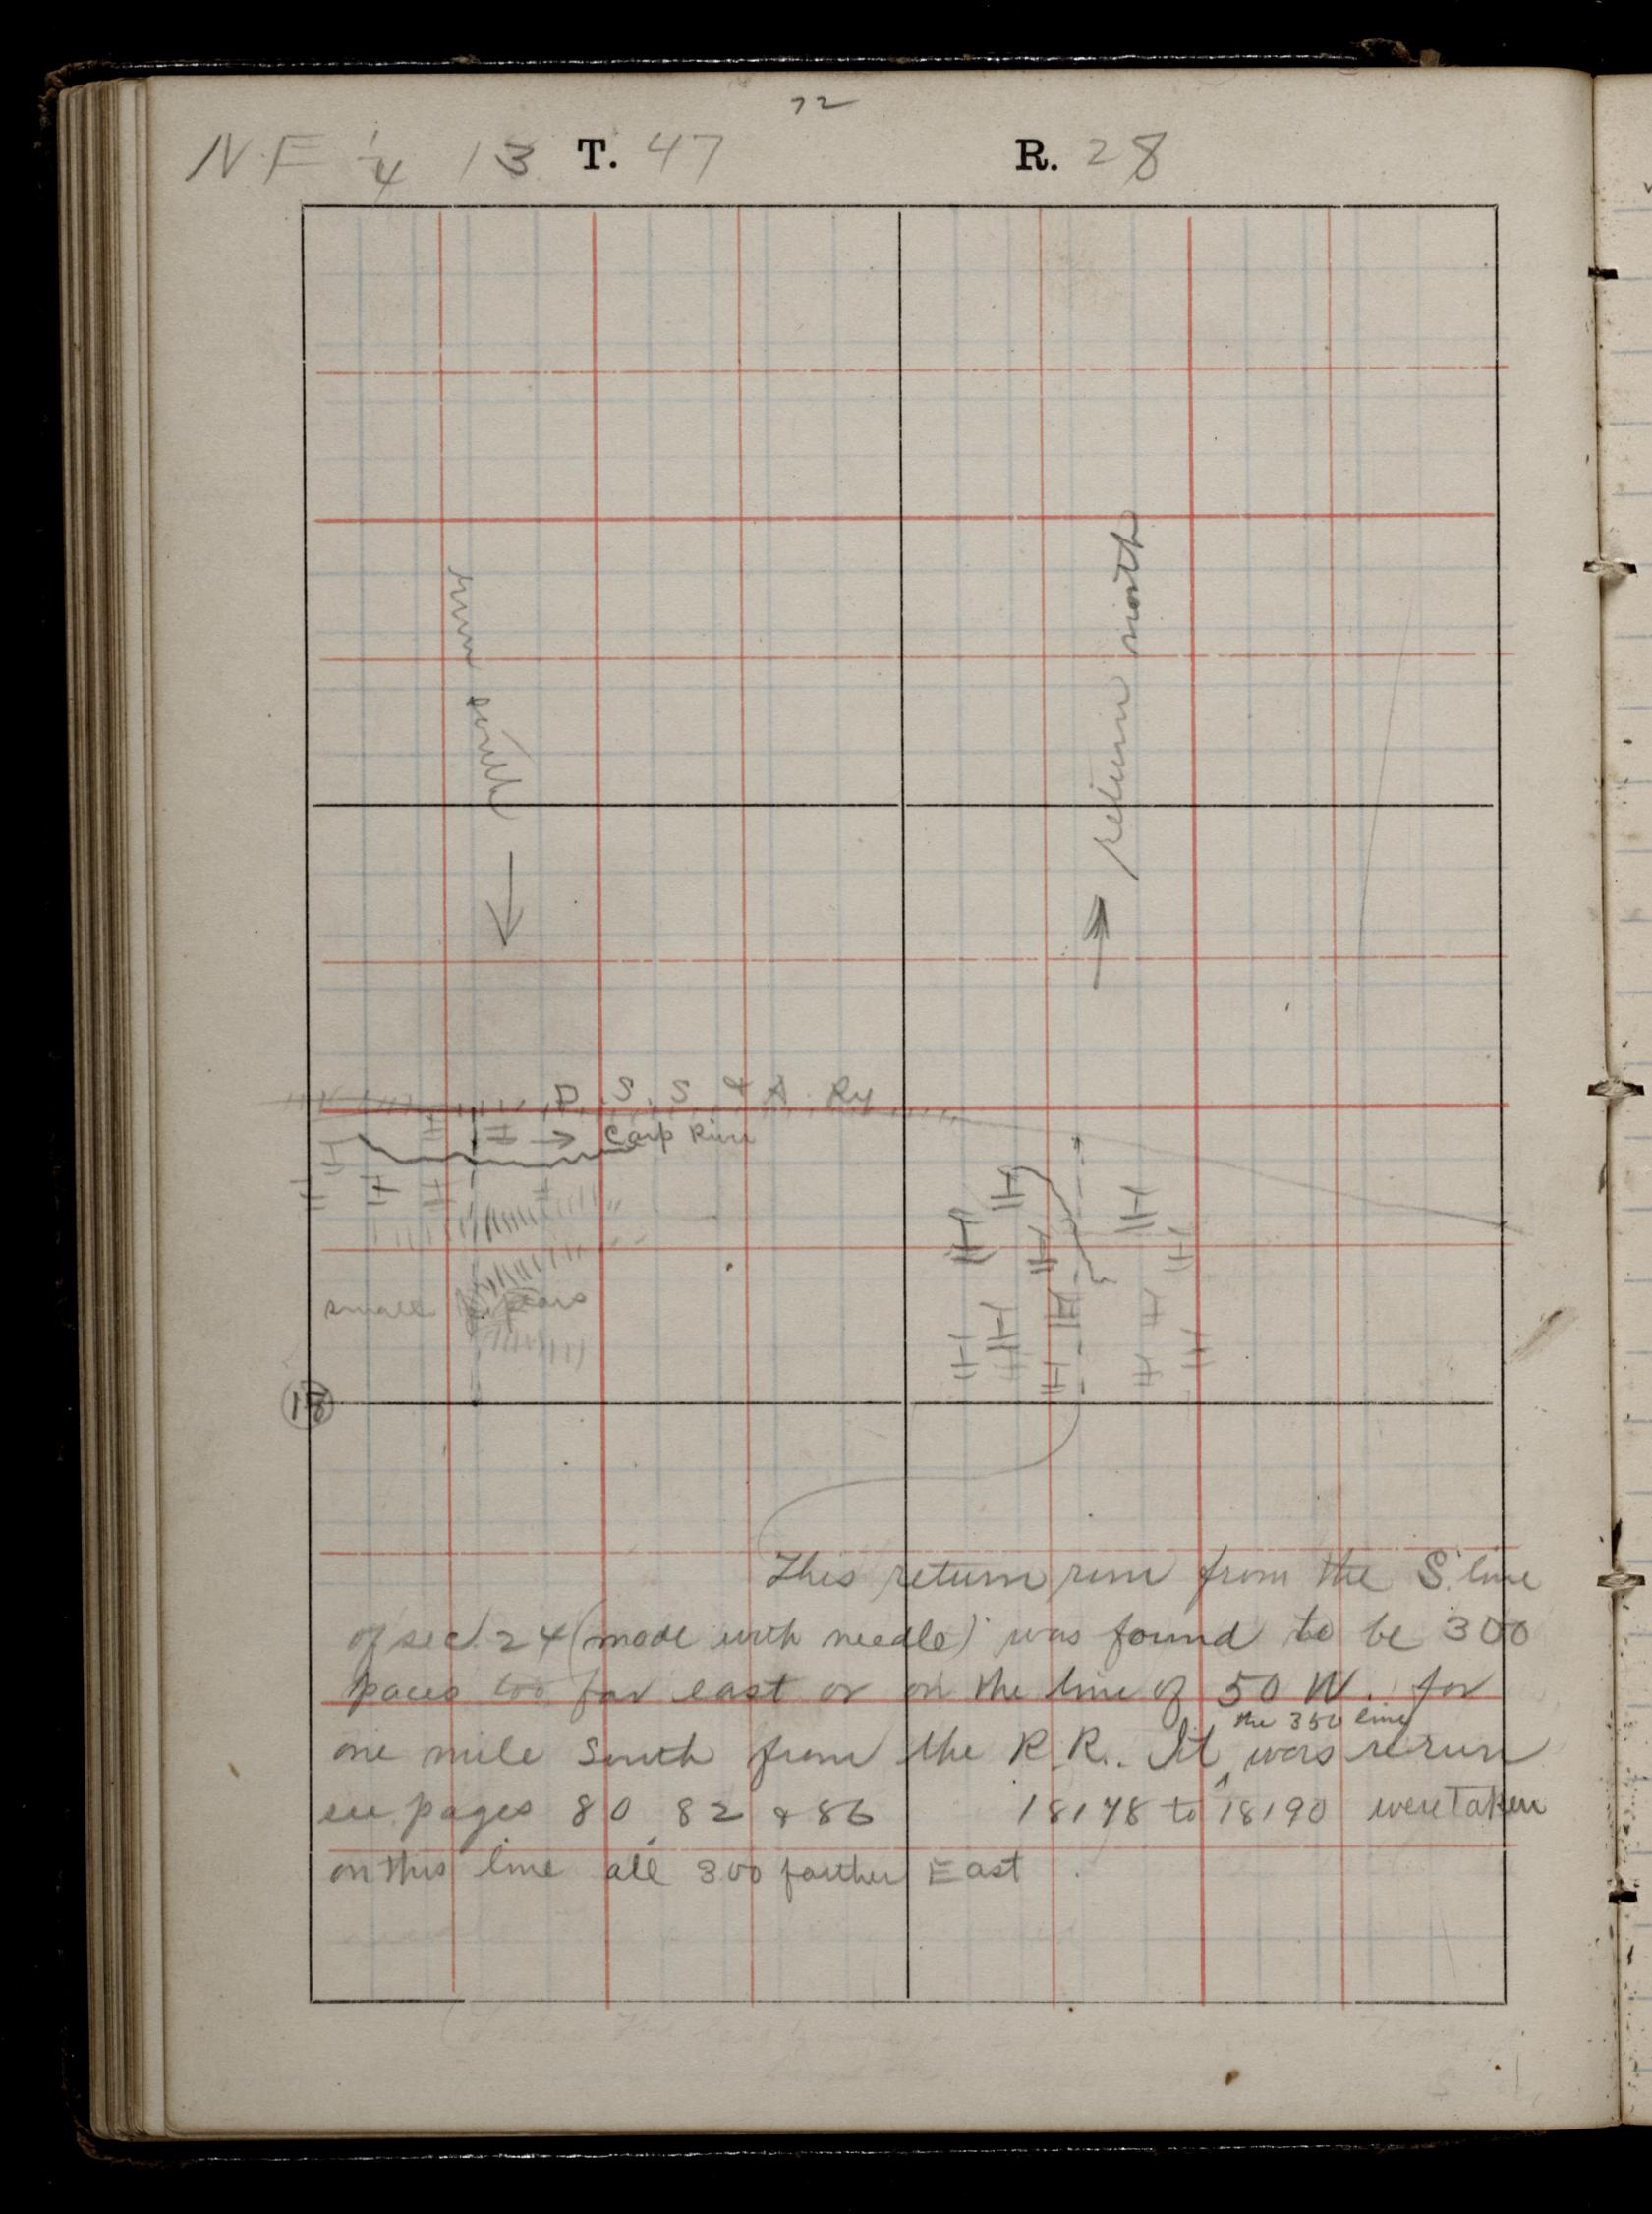 72
NE ¼ 13 T. 47 R. 28
return north
south
D. S. S. & A. Ry
Carp River
small
This return run from the S. line
of sec. 24 (made with needle) was found to be 300
paces too far east or on the line of 50 W. for
one mile South from the R.R. It ‸ was rerun
the 350 line
see pages 80, 82 & 86 18178 to 18190 were taken
on this line all 300 farther East